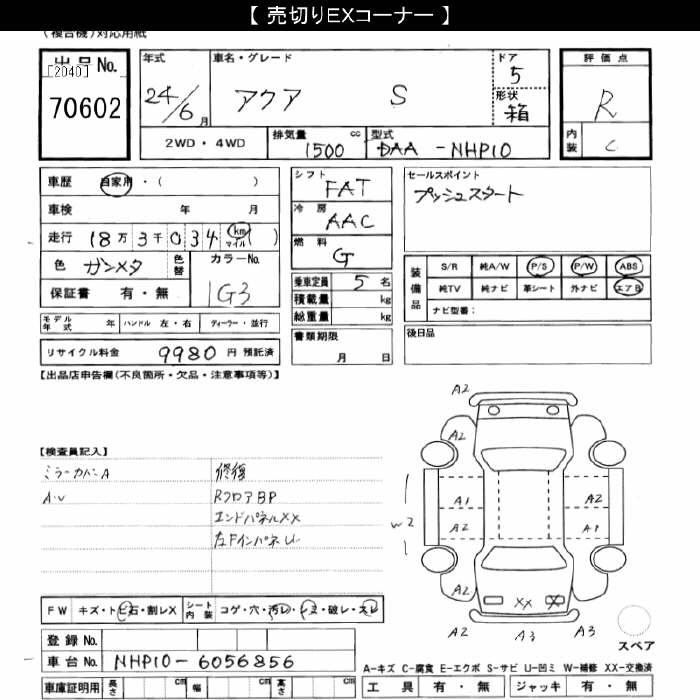 【 売切りEXコーナー 】
（複合機）対応用紙
出品No. [2040] 70602
年式 24/6月
車名・グレード アクア S
ドア 5
形状 箱
評価点 R
内装 C
2WD・4WD
排気量 1500 cc
型式 DAA-NHP10
車歴 自家用・（ ）
車検 年 月
走行 18万3千034 (km マイル)
色 ガンメタ 色替
カラーNo. 1G3
保証書 有・無
シフト FAT
冷房 AAC
燃料 G
乗車定員 5名
積載量 kg
総重量 kg
セールスポイント
プッシュスタート
装備品
S/R 純A/W P/S P/W ABS
純TV 純ナビ 革シート 外ナビ エアB
ナビ型番：
モデル年式 年 ハンドル 左・右 ディーラー・並行
リサイクル料金 9980 円 預託済
書類期限 月 日
後日品
【出品店申告欄(不良箇所・欠品・注意事項等)】
【検査員記入】
ミラーカバーA
A・V
修復
RフロアBP
エンドパネルXX
左FインパネU
A2
A2
A1 A2
W2
A2 A1
A2
XX X
A2 A3 A3
スペア
FW キズ・トビ石・割レX
シート内装 コゲ・穴・汚レ・シミ・破レ・スレ
登録No.
車台No. NHP10-6056856
車庫証明用 長さ cm 幅 cm 高さ cm
A-キズ C-腐食 E-エクボ S-サビ U-凹ミ W-補修 XX-交換済
工具 有・無 ジャッキ 有・無